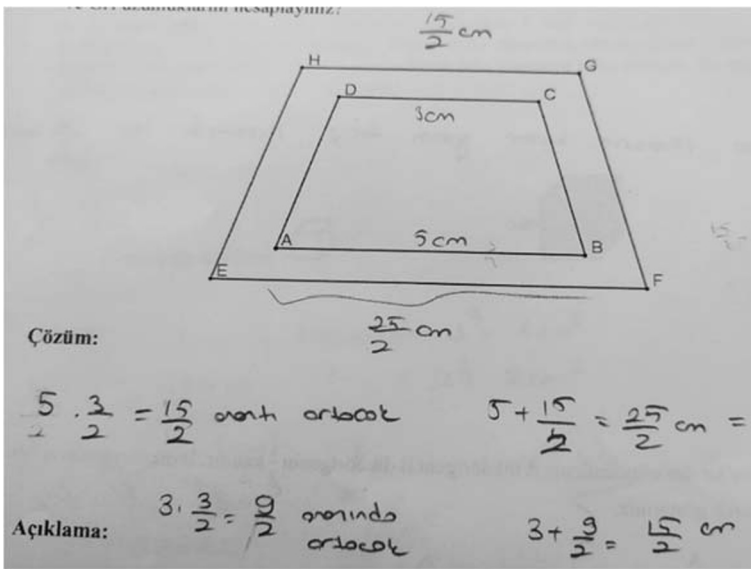 uzunluklarını hesaplayınız?
15/2 cm
H G
D C
3cm
A 5cm B
E F
25/2 cm
Çözüm:
5 . 3/2 = 15/2 artacak 5 + 15/2 = 25/2 cm =
3 . 3/2 = 9/2 oranında
Açıklama: artacak 3 + 9/2 = 15/2 cm